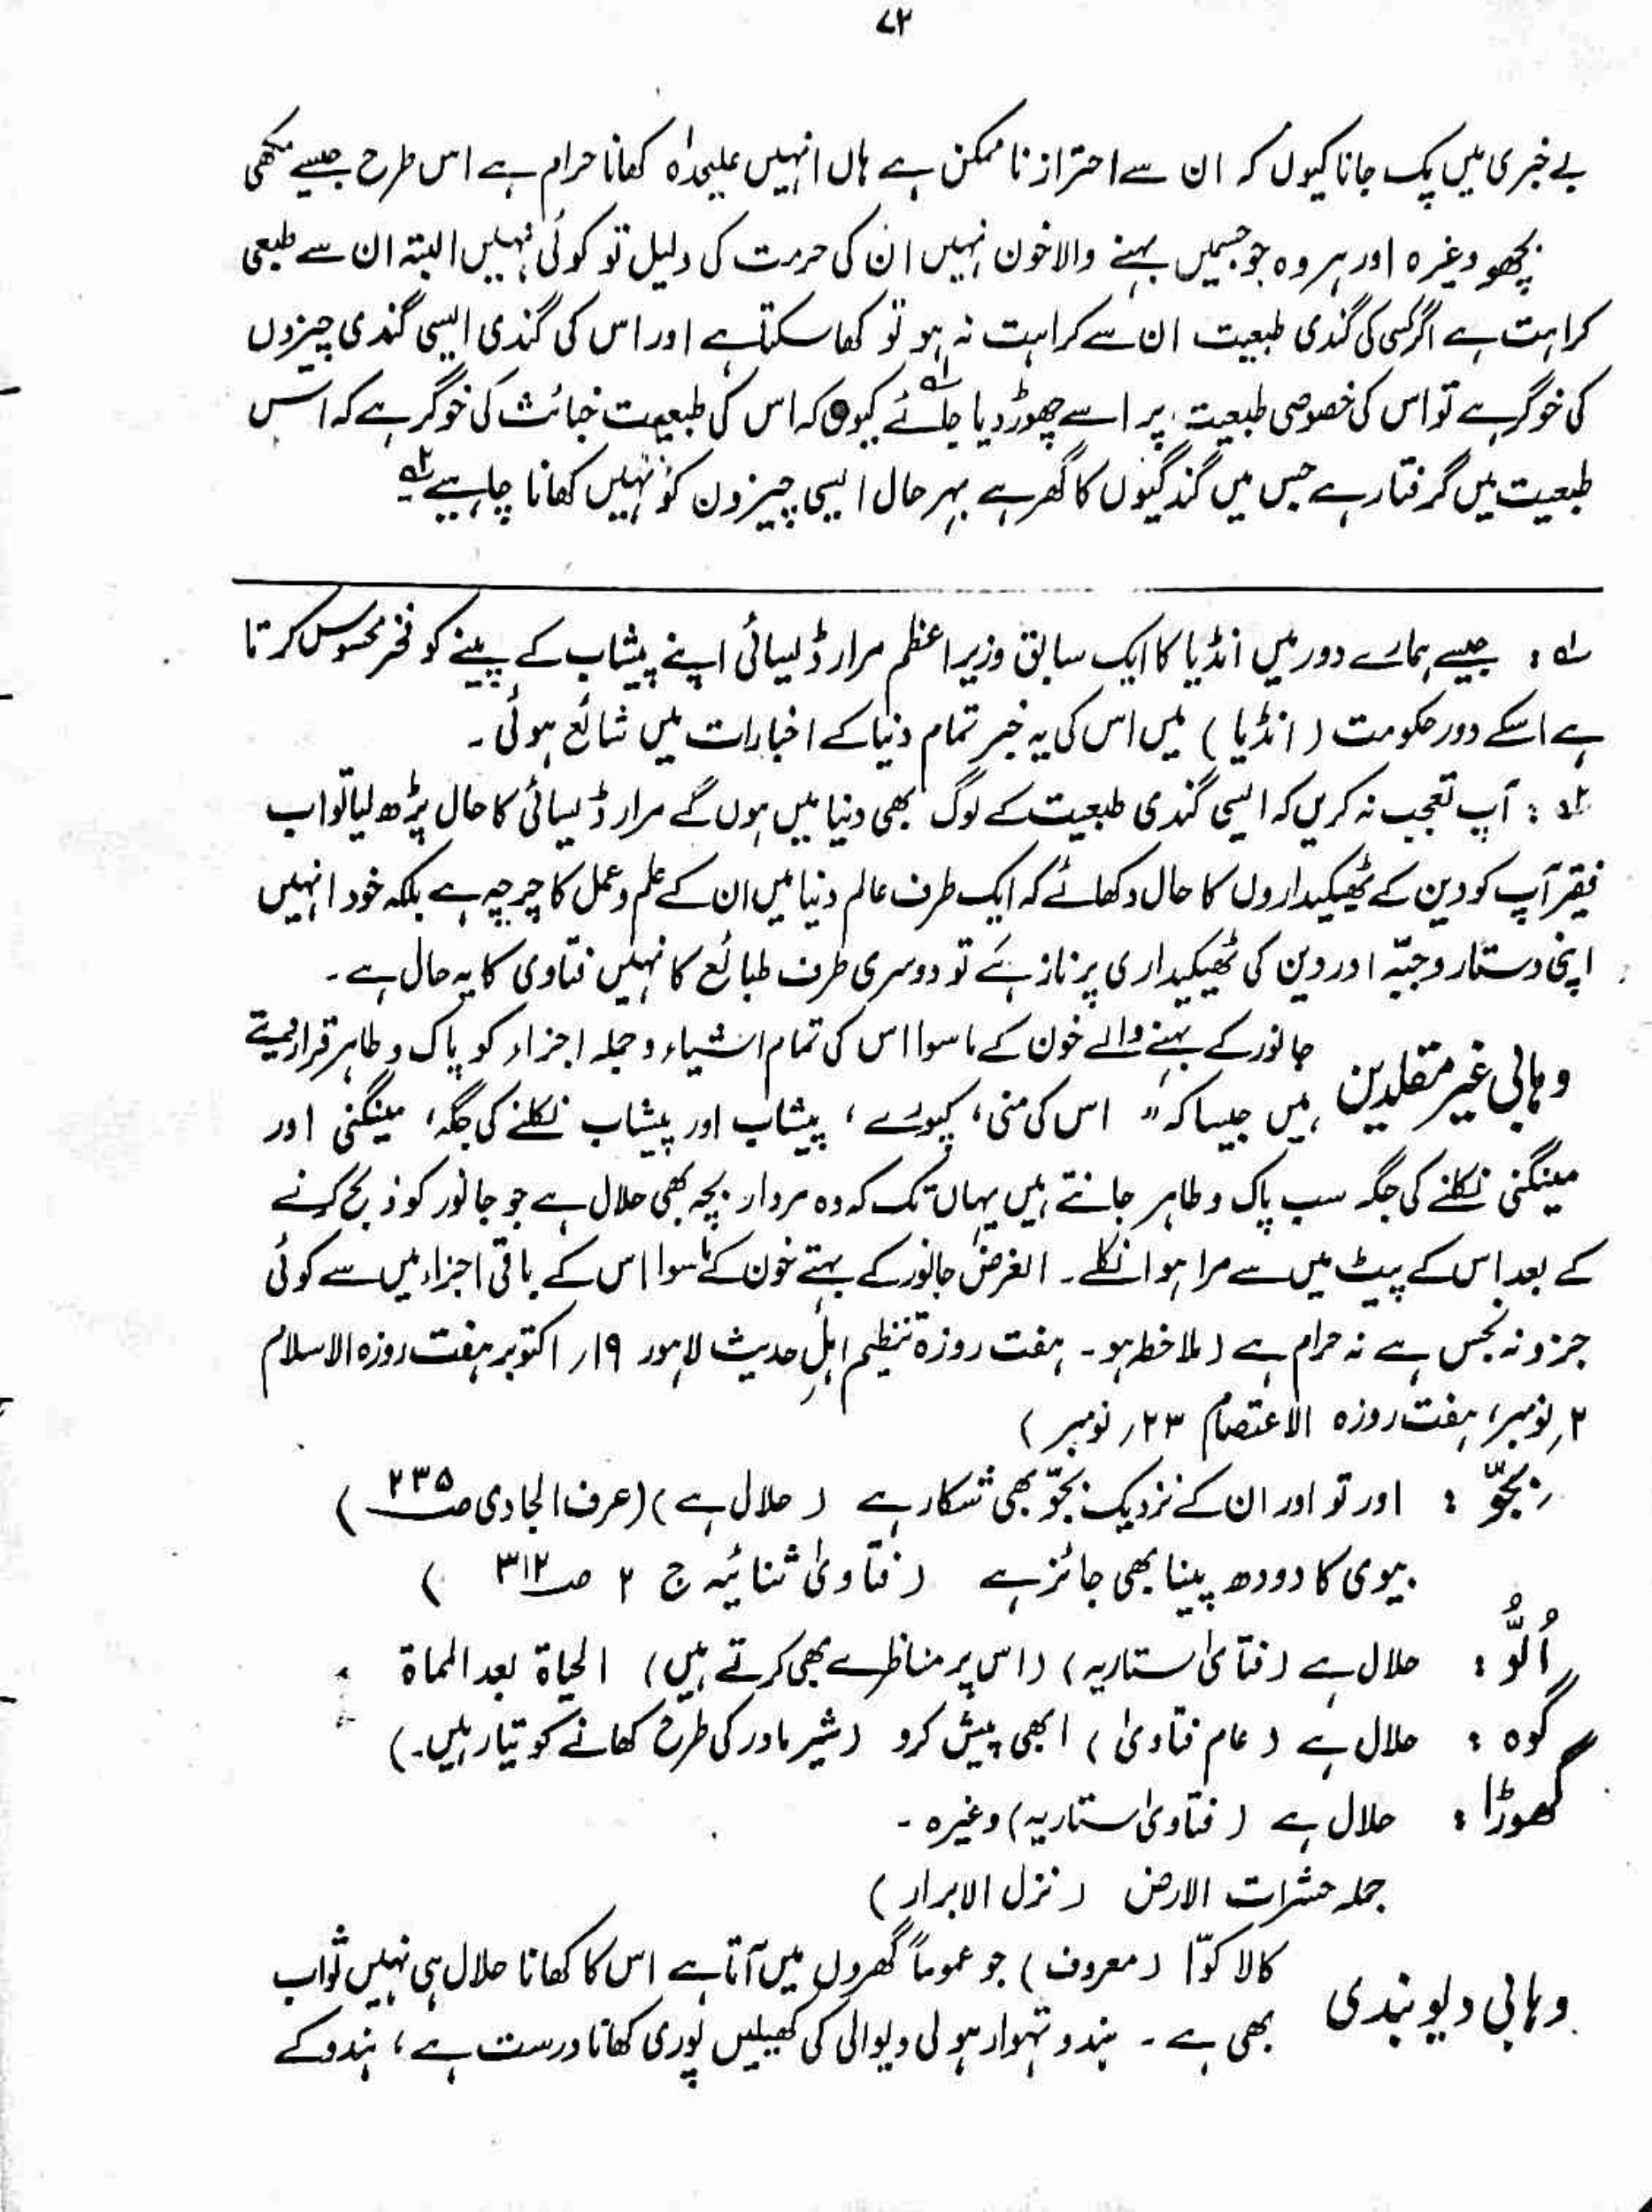 ۷۲
بے خبری میں پک جانا کیوں کہ ان سے احتراز ناممکن ہے ہاں انہیں علیحدہ کھانا حرام ہے اس طرح جیسے مکھی
بچھو وغیرہ اور ہر وہ جو جسمیں بہنے والا خون نہیں ان کی حرمت کی دلیل تو کوئی نہیں البتہ ان سے طبعی
کراہت ہے اگر کسی کی گندی طبیعت ان سے کراہت نہ ہو تو کھا سکتا ہے اور اس کی گندی ایسی گندی چیزوں
کی خوگر ہے تو اس کی خصوصی طبیعت پر اسے چھوڑ دیا جائے ۱؎ کیوں کہ اس کی طبیعت خبائث کی خوگر ہے کہ اس
طبیعت میں گرفتار ہے جس میں گندگیوں کا گھر ہے بہر حال ایسی چیزون کو نہیں کھانا چاہیے ۲؎
۱؎ : جیسے ہمارے دور میں انڈیا کا ایک سابق وزیر اعظم مرار ڈیسائی اپنے پیشاب کے پینے کو فخر محسوس کرتا
ہے اسکے دور حکومت (انڈیا) میں اس کی یہ خبر تمام دنیا کے اخبارات میں شائع ہوئی۔
۲؎ : آپ تعجب نہ کریں کہ ایسی گندی طبیعت کے لوگ بھی دنیا میں ہوں گے مرار ڈیسائی کا حال پڑھ لیا تو اب
فقیر آپ کو دین کے ٹھیکیداروں کا حال دکھائے کہ ایک طرف عالم دنیا میں ان کے علم و عمل کا چرچہ ہے بلکہ خود انہیں
اپنی دستار و جبّہ اور دین کی ٹھیکیداری پر ناز ہے تو دوسری طرف طبائع کا نہیں فتاوی کا یہ حال ہے۔
وہابی غیر مقلدین جانور کے بہنے والے خون کے ماسوا اس کی تمام اشیاء و جملہ اجزاء کو پاک و طاہر قرار دیتے
ہیں جیسا کہ " اس کی منی، کپورے، پیشاب اور پیشاب نکلنے کی جگہ، مینگنی اور
مینگنی نکلنے کی جگہ سب پاک و طاہر جانتے ہیں یہاں تک کہ وہ مردار بچہ بھی حلال ہے جو جانور کو ذبح کرنے
کے بعد اس کے پیٹ میں سے مرا ہوا نکلے۔ الغرض جانور کے بہتے خون کے ماسوا اس کے باقی اجزاء میں سے کوئی
جزو نہ نجس ہے نہ حرام ہے (ملاخطہ ہو۔ ہفت روزۃ تنظیم اہلِ حدیث لاہور ۱۹؍ اکتوبر ہفت روزہ الاسلام
۲؍ نومبر، ہفت روزہ الاعتصام ۲۳؍ نومبر)
بجّو : اور تو اور ان کے نزدیک بجّو بھی شکار ہے (حلال ہے) (عرف الجادی صـ ۲۳۵)
بیوی کا دودھ پینا بھی جائز ہے (فتاویٰ ثنائیہ ج ۲ صـ ۳۱۲)
اُلُّو : حلال ہے (فتایٰ ستاریہ) (اس پر مناظرے بھی کرتے ہیں) الحیاۃ بعد المماۃ
گوہ : حلال ہے (عام فتاویٰ) ابھی پیش کرو (شیر مادر کی طرح کھانے کو تیار ہیں۔)
گھوڑا : حلال ہے (فتاویٰ ستاریہ) وغیرہ۔
جملہ حشرات الارض (نزل الابرار)
وہابی دیوبندی کالا کوّا (معروف) جو عموماً گھروں میں آتا ہے اس کا کھانا حلال ہی نہیں ثواب
بھی ہے۔ ہندو تہوار ہولی دیوالی کی کھیلیں پوری کھانا درست ہے، ہندو کے